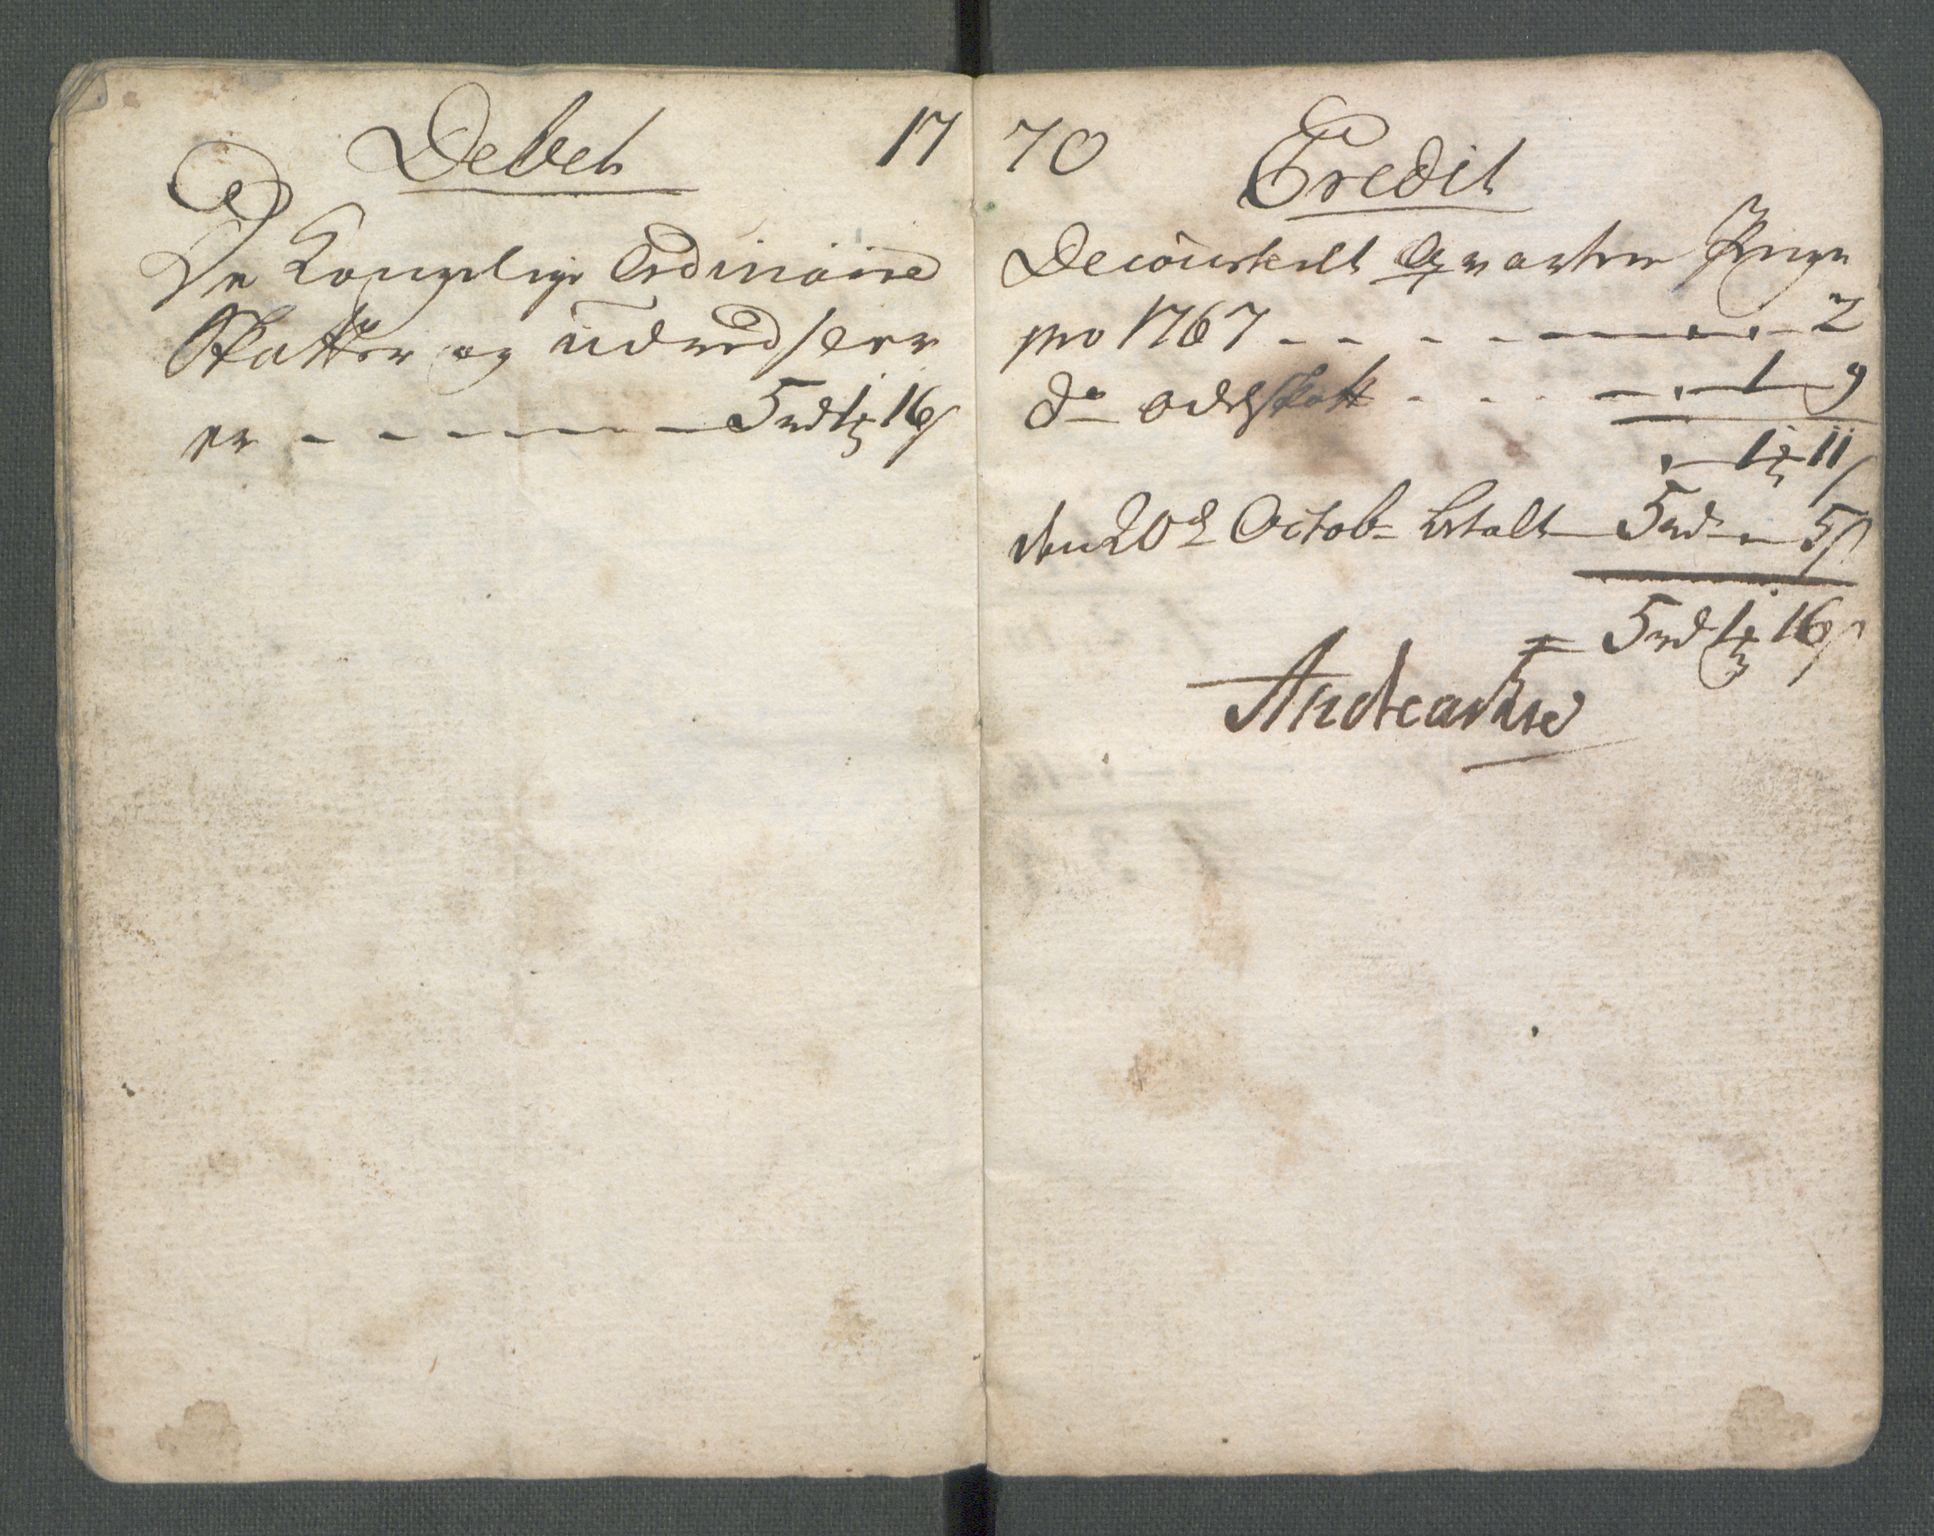 Debet 17
De Kongelige Ordinaire
Skatter og udredseler
er - - - - - - 5rd 1ort 16s
70
Credit
Decourterit Qvarteer Penge
pro 1767 - - - - - - 2
do odelskatt - - - - 1 9
1ort 11s
den 20de Octob betalt 5rd - 5s
5rd 1ort 16s